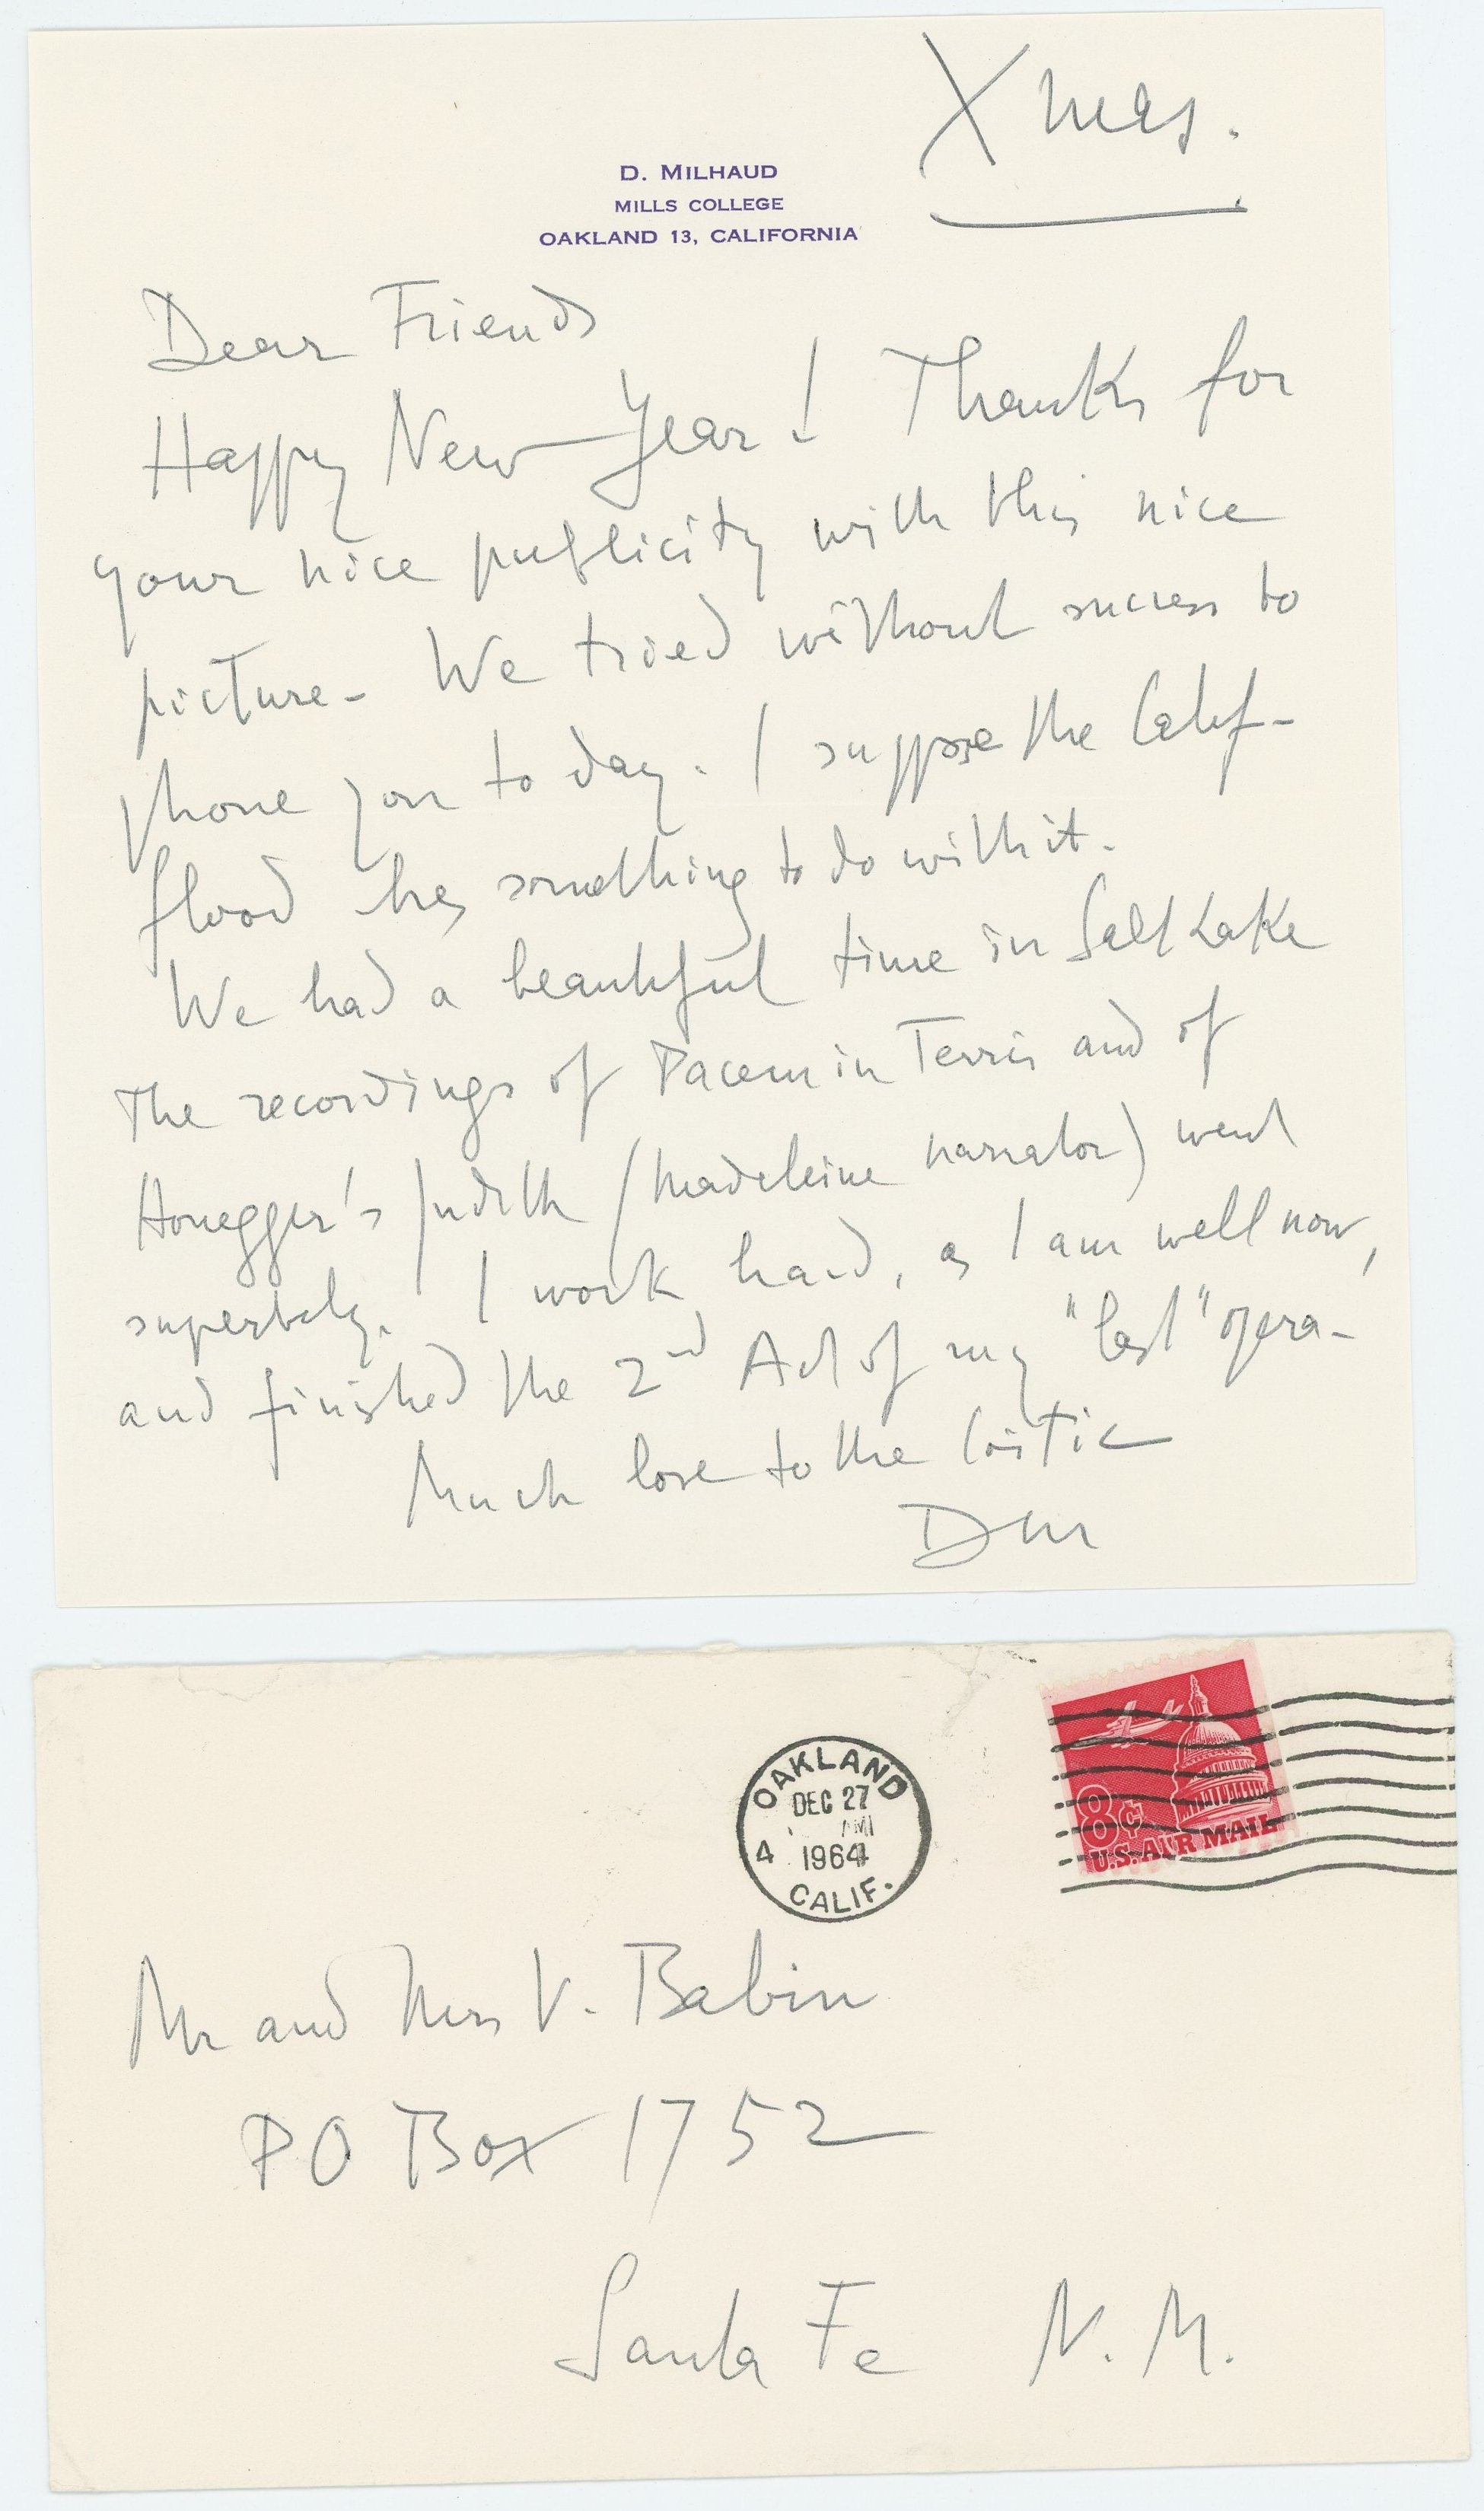 Xmas.
D. MILHAUD
MILLS COLLEGE
OAKLAND 13, CALIFORNIA
Dear Friends
Happy New Year! Thanks for
your nice publicity with this nice
picture - We tried without success to
phone you to day. I suppose the Calif-
flood has something to do with it.
We had a beautiful time in Salt Lake
The recordings of Pacem in Terris and of
Honegger's Judith (Madeleine narrator) went
superbely. I work hard, as I am well now,
and finished the 2nd Act of my "last" opera -
Much love to the
DM
OAKLAND
DEC 27
AM
4 1964
CALIF.
8¢
U.S. AIR MAIL
Mr and Mrs V. Babin
PO Box 1752
Santa Fe N. M.